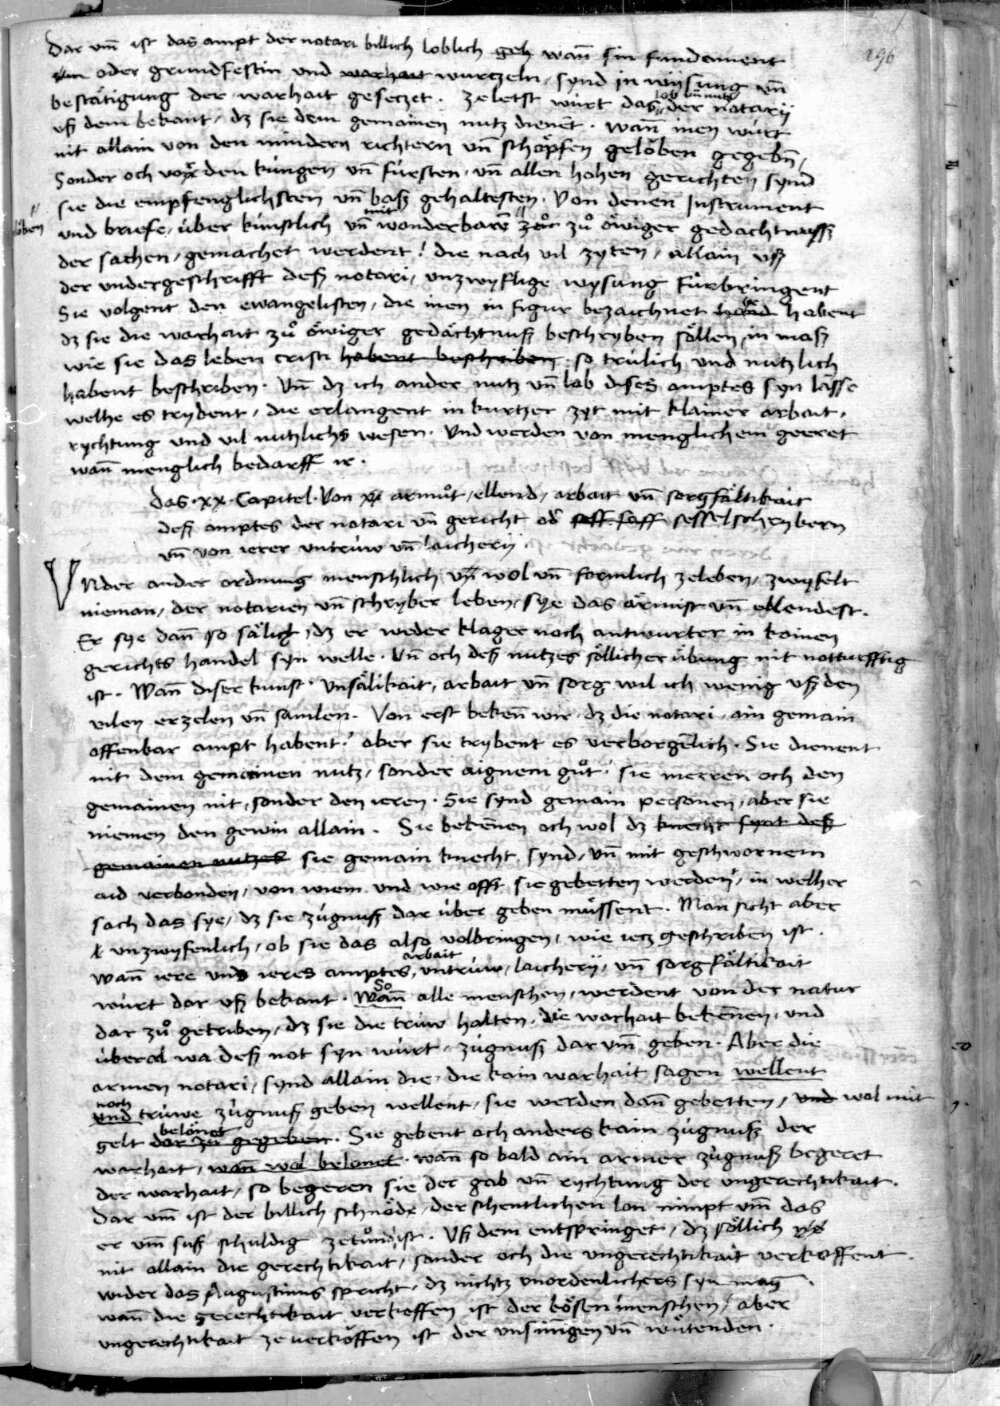 296
Dar vm̄ ist das ampt der notari billich loblich geh wan̄ sin fundament
vm̄ oder grundfestin vnd warhait wurtzeln, synd in wysung vn̄
bestätigung der warhait gesetzet. Zeletst würt das lob vn̄ nutz der notarij
vß dem bekant, dz sie dem gemainen nutz dienent. Wan̄ inen würt
nit allain von den mindern richtern vn̄ schöpfen gelöben gegebn̄,
Sonder och von den küngen vn̄ fürsten, vn̄ allen hohen gerichten synd
sie die empfenglichsten vn̄ baß gehaltesten. Von denen Instrument
löben vnd briefe, über künstlich vn̄ mit wonderbarē zů öwiger gedächtnuß
der sachen, gemachet werdent! die nach vil zyten, allain vß
der vndergeschrifft deß notari, vnzwyflige wysung fürbringent
Sie volgent den ewangelisten, die inen in figur bezaichnet hand habent
dz sie die warhait zů öwiger gedächtnuß beschryben söllen, in maß
wie sie das leben cristi habent beschriben. so trülich vnd nutzlich
habent beschriben. Vn̄ dz ich ander nutz vn̄ lob dises amptes syn lasse
welhe es trybent, die erlangent in kurtzer zyt mit klainer arbait,
rychtung vnd vil nutzlichs wesen. Vnd werden von menglichem geeret
wan̄ menglich bedarff ir.
Das .xx. Capitel. Von armůt, ellend, arbait vn̄ sorgfältikait
deß amptes der notari vn̄ gericht od̄ seff saff sesselschrybern
vn̄ von ierer vntrüw vn̄ laicherij.
VNder ander ordnung menschlich vn̄ wol vn̄ formlich zeleben, zwyfelt
nieman, der notarien vn̄ schryber leben, sye das ärmist vn̄ ellendest.
Er sye dan̄ so sälich, dz er weder klager noch antwurter in kainen
gerichts handel syn welle. Vn̄ och deß nutzes söllicher übung nit notturfftig
ist. Wan̄ diser kunst, vnsälikait, arbait vn̄ sorg wil ich wenig vß den
vilen erzelen vn̄ samlen. Von erst beken̄ wir, dz die notari, ain gemain
offenbar ampt habent! aber sie trybent es verborgēlich. Sie dienent
nit dem gemainen nutz, sonder aignem gůt! sie merren och den
gemainen nit, sonder den ieren. Sie synd gemain personen, aber sie
niemen den gewin allain. Sie beken̄en och wol dz knecht synt deß
gemainen nutzes sie gemain knecht synd, vn̄ mit geschwornem
aid verbonden, von wiem vnd wie offt sie gebetten werden, in welher
sach das sye, dz sie zügnuß dar über geben müssent. Man sicht aber
l vnzwyfenlich, ob sie das also volbringen, wie iecz geschriben ist.
wan̄ iere vnd ieres amptes, arbait vntrüw, laicherij, vn̄ sorgfältikait
würt dar vß bekant. So Wan̄ alle menschen, werdent von der natur
dar zů getriben, dz sie die trüw halten. die warhait beken̄en, vnd
überal wa deß not syn würt, zügnuß dar vm̄ geben. Aber die
armen notari, synd allain die, die kain warhait sagen wellent
noch vnd trüwe zügnuß geben wellent, sie werden dan̄ gebetten, vnd wol mit
gelt belonet dar zů gegeben. Sie gebent och anders kain zügnuß der
warhait, wan̄ wol belonet. wan̄ so bald ain armer zügnuß begeret
der warhait, so begeren sie der gab vn̄ rychtung der vngerechtikait.
Dar vm̄ ist der billich schnöde, der schentlichen lon nimpt vm̄ das
er vm̄ suß schuldig zetůn ist. Vß dem entspringet, dz söllich
nit allain die gerechtikait, sonder och die vngerechtikait verkoffent.
wider das Augustinus spricht, dz nichtz vnordenlichers syn mag.
wan̄ die gerechtikait verkoffen ist der bösen menschen, aber
vngerechtikait ze verkoffen ist der vnsinnigen vn̄ wütenden.